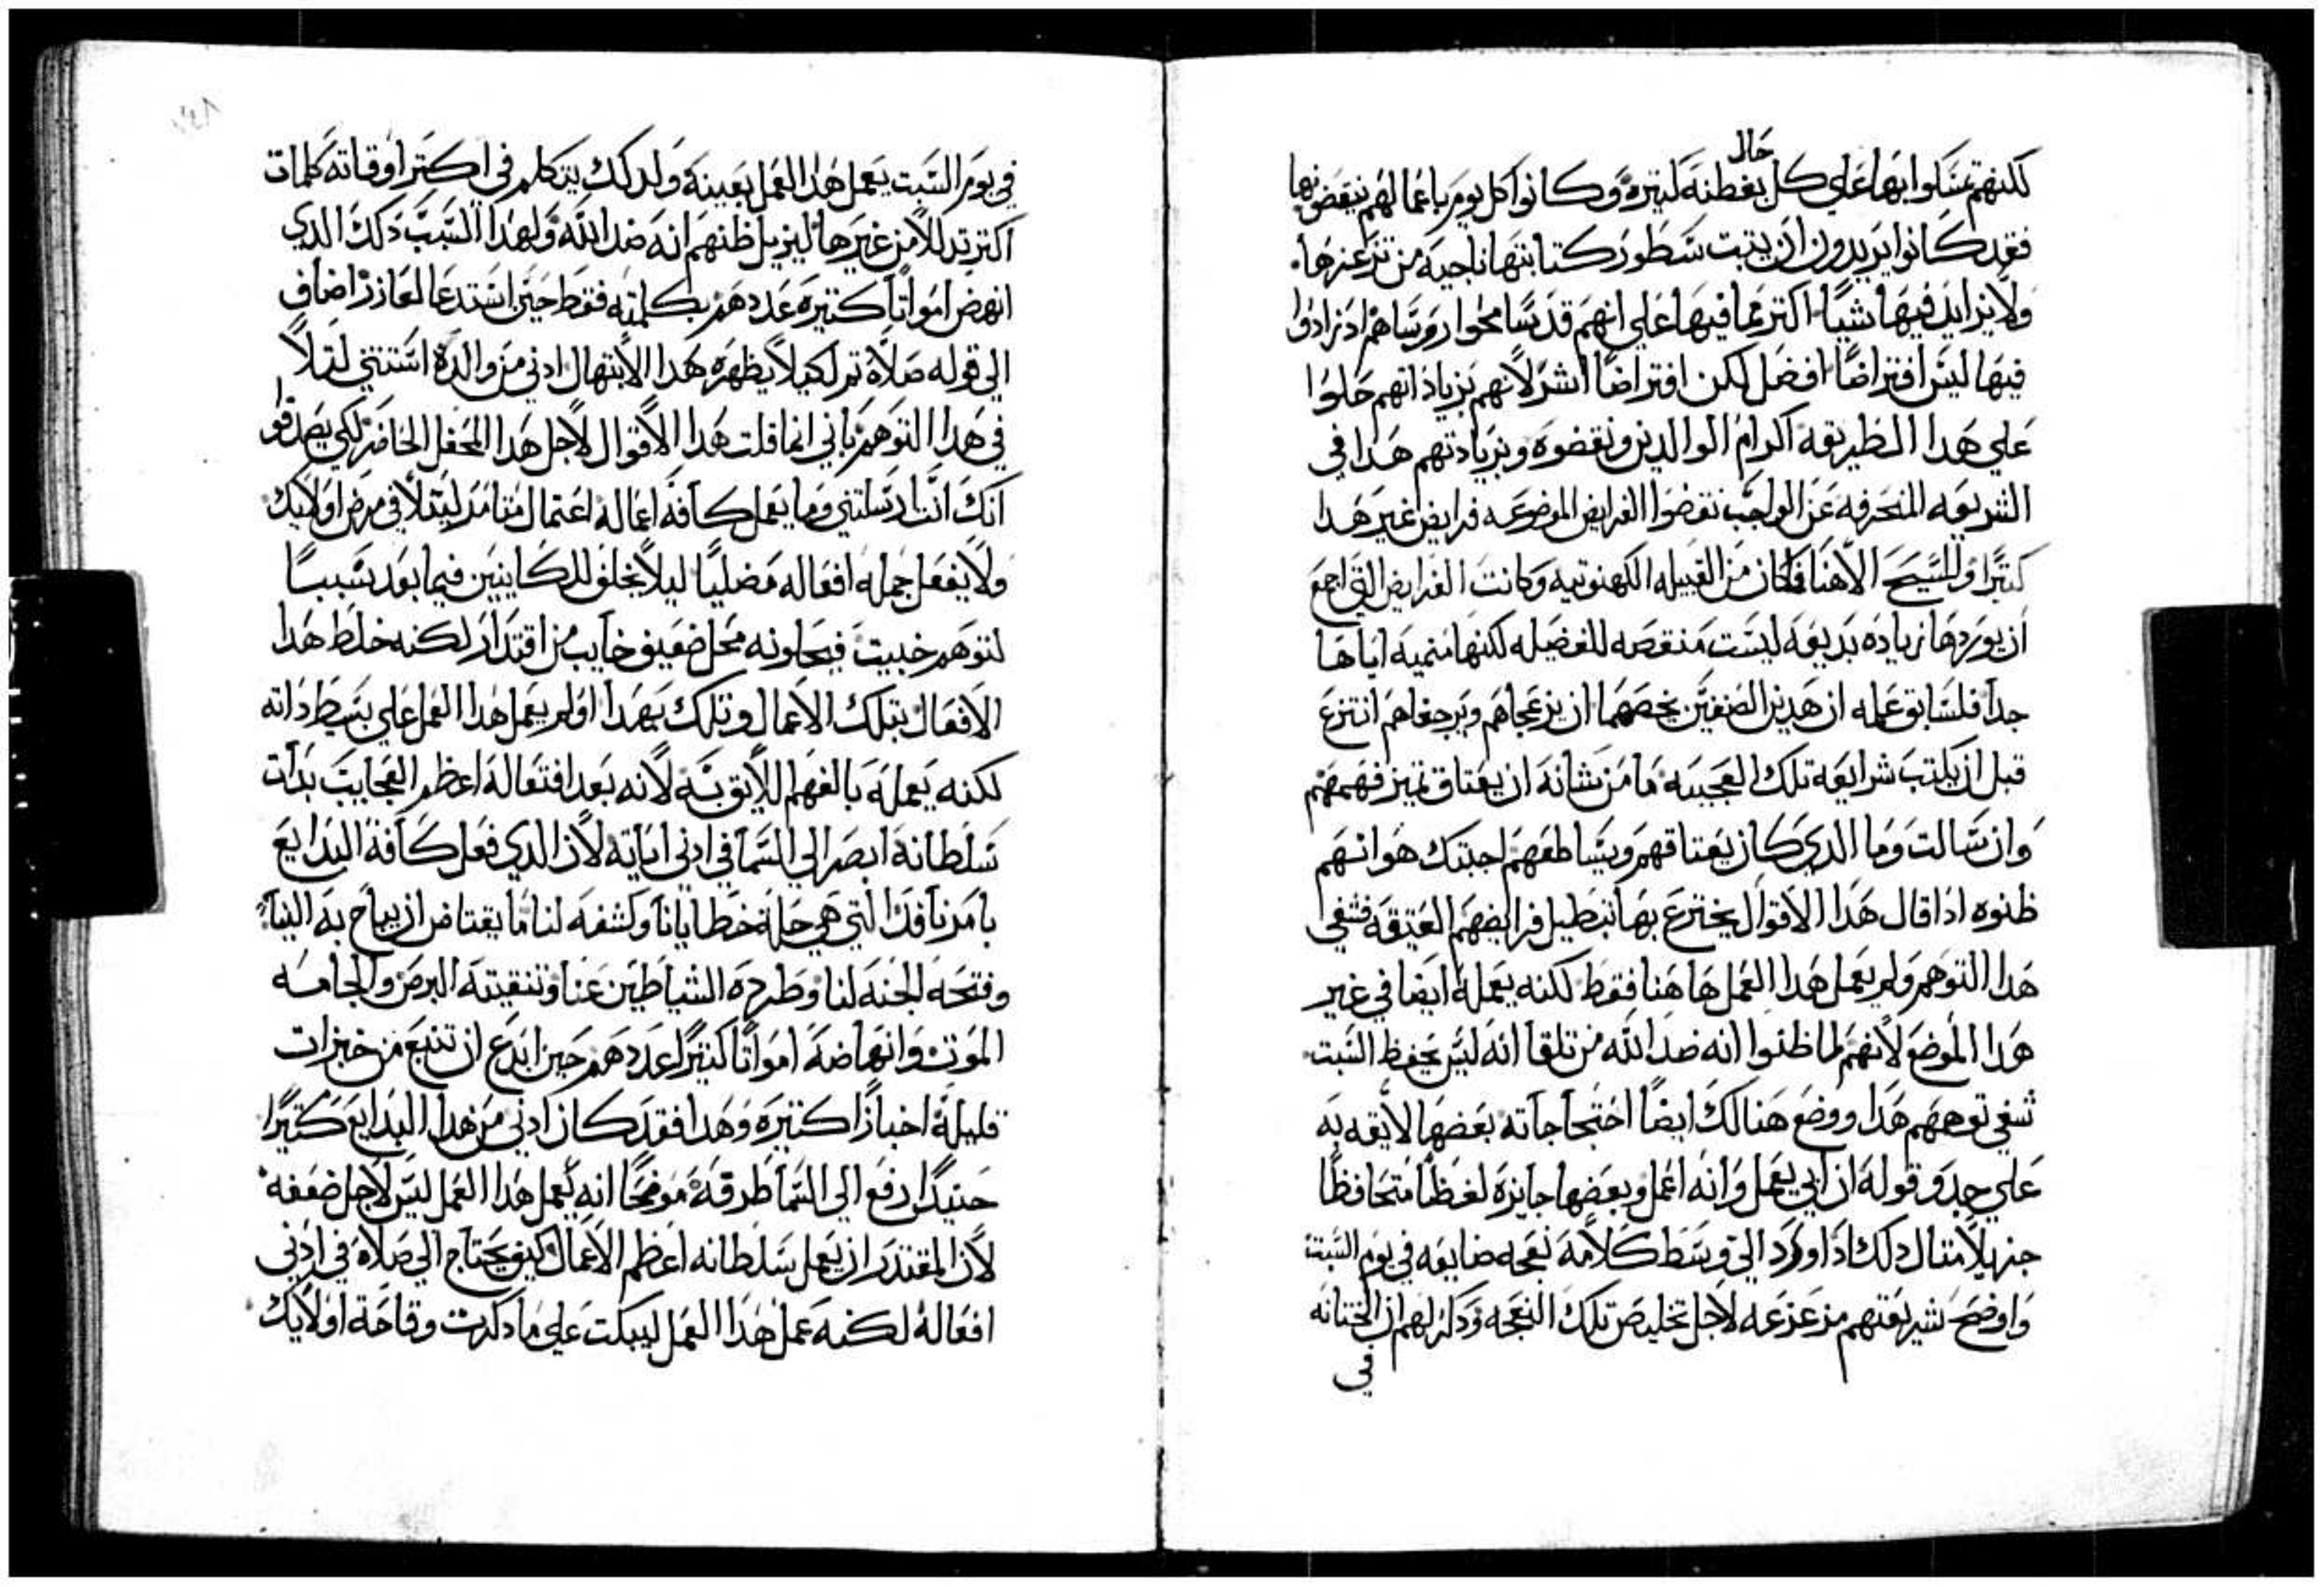 لكنهم تمسكوا بها علي كل حال بغطنة ليتره وكانوا كل يوم باعمالهم ينقضونها
فقد كانوا يريدون ان يتبت سطور كتابتها ناجيه من تزعزها.
ولا يزايد فيها شيًا اكتر مما فيها علي انهم قد سامحوا روساهم اد زادوا
فيها ليس افتراضًا افضل لكن افتراضًا اشر لانهم بزياداتهم حلوا
علي هدا الطريقه اكرام الوالدين ونقضوه وبزيادتهم هدا في
الشريعه المنحرفه عن الواجب نقضوا الفرايض الموضوعه فرايض غير هدا
كتيرًا والمسيح الاهنا فكان من القبيله الكهنوتيه وكانت الفرايض التي اجمع
ان يوردها زياده بديعه ليست منقصه للفضيله لكنها منميه اياها
جدًا فلسابق عمله ان هدين الصنفين يخصهما ان يزعجاهم ويرجفاهم انتزع
قبل ان يكتب شرايعه تلك العجيبه ما من شانه ان يعتاق تميز فهمهم
وان سالت وما الدي كان يعتاقهم ويشاطفهم اجبتك هو انهم
ظنوه ادا قال هدا الاقوال يخترع بها تبطيل فرايضهم العتيقه فشفي
هدا التوهم ولم يعمل هدا العمل ها هنا فقط لكنه يعمله ايضا في غير
هدا الموضع لانهم لما ظنوا انه ضد الله من تلقا انه ليس يحفظ السبت
شفي توهمهم هدا ووضع هنالك ايضًا احتجاجاته بعضها لايقه به
علي حدو قوله ان ابي يعمل وانه اعمل وبعضها جايزة لفظًا متحافظًا
جزيلًا متال دلك ادا ورد الي وسط كلامه نعجه ضايعه في يوم السبت
واوضح شريعتهم مزعزعه لاجل تخليص تلك النعجه ودكر لهم ان الختانه
في
في يوم السبت يعمل هدا العمل بعينه ولدلك يتكلم في اكتر اوقاته كلمات
اكتر تدللًا من غيرها ليزيل ظنهم انه ضد الله ولهدا السبب دلك الدي
انهض امواتًا كتيره عددهم بكلمته فقط حين استدعا لعازر اضاف
الي قوله صلاة تم لكيلا يظهره هدا الابتهال ادني من والده استتني لتلًا
في هدا التوهم باني انما قلت هدا الاقوال لاجل هدا المحفل الحاضر لكي يصدقوا
انك انت ارسلتني وما يعمل كافة اعماله اعتمال متامر ليتلا في مرض اولايك
ولا يفعل جملة افعاله مصليًا ليلا يخلف للكاينين فيما بعد سببًا
لتوهم خبيت فيحلونه محل ضعيف خايب من اقتدار لكنه خلط هدا
الافعال بتلك الاعمال وتلك بهدا اولم يعمل هدا العمل علي بسيط داته
لكنه يعمله بالفهم اللايق به لانه بعد افتعاله اعظم العجايب بدات
سلطانه ابصر الي السما في ادني اياته لان الدي فعل كافة البدايع
بامرنافد التي هي حلة خطايانا وكشفه لنا ما يعتاض ان يباح به الينا
وفتحه الجنه لنا وطرده الشياطين عنا وتنقيته البرص والجامه
الموت وانهاضه امواتًا كتيرًا عددهم حين ابدع ان تنبع من خبزات
قليلة اخبازًا كتيره وهدا فقد كان ادني من هدا البدايع كتيرًا
حنيدًا رفع الي السما طرفه موضحًا انه يعمل هدا العمل ليس لاجل ضعفه
لان المقتدر ان يعمل سلطانه اعظم الاعمال كيف يحتاج الي صلاه في ادني
افعاله لكنه عمل هدا العمل ليبكت علي ما دكرت وقاحة اولايك